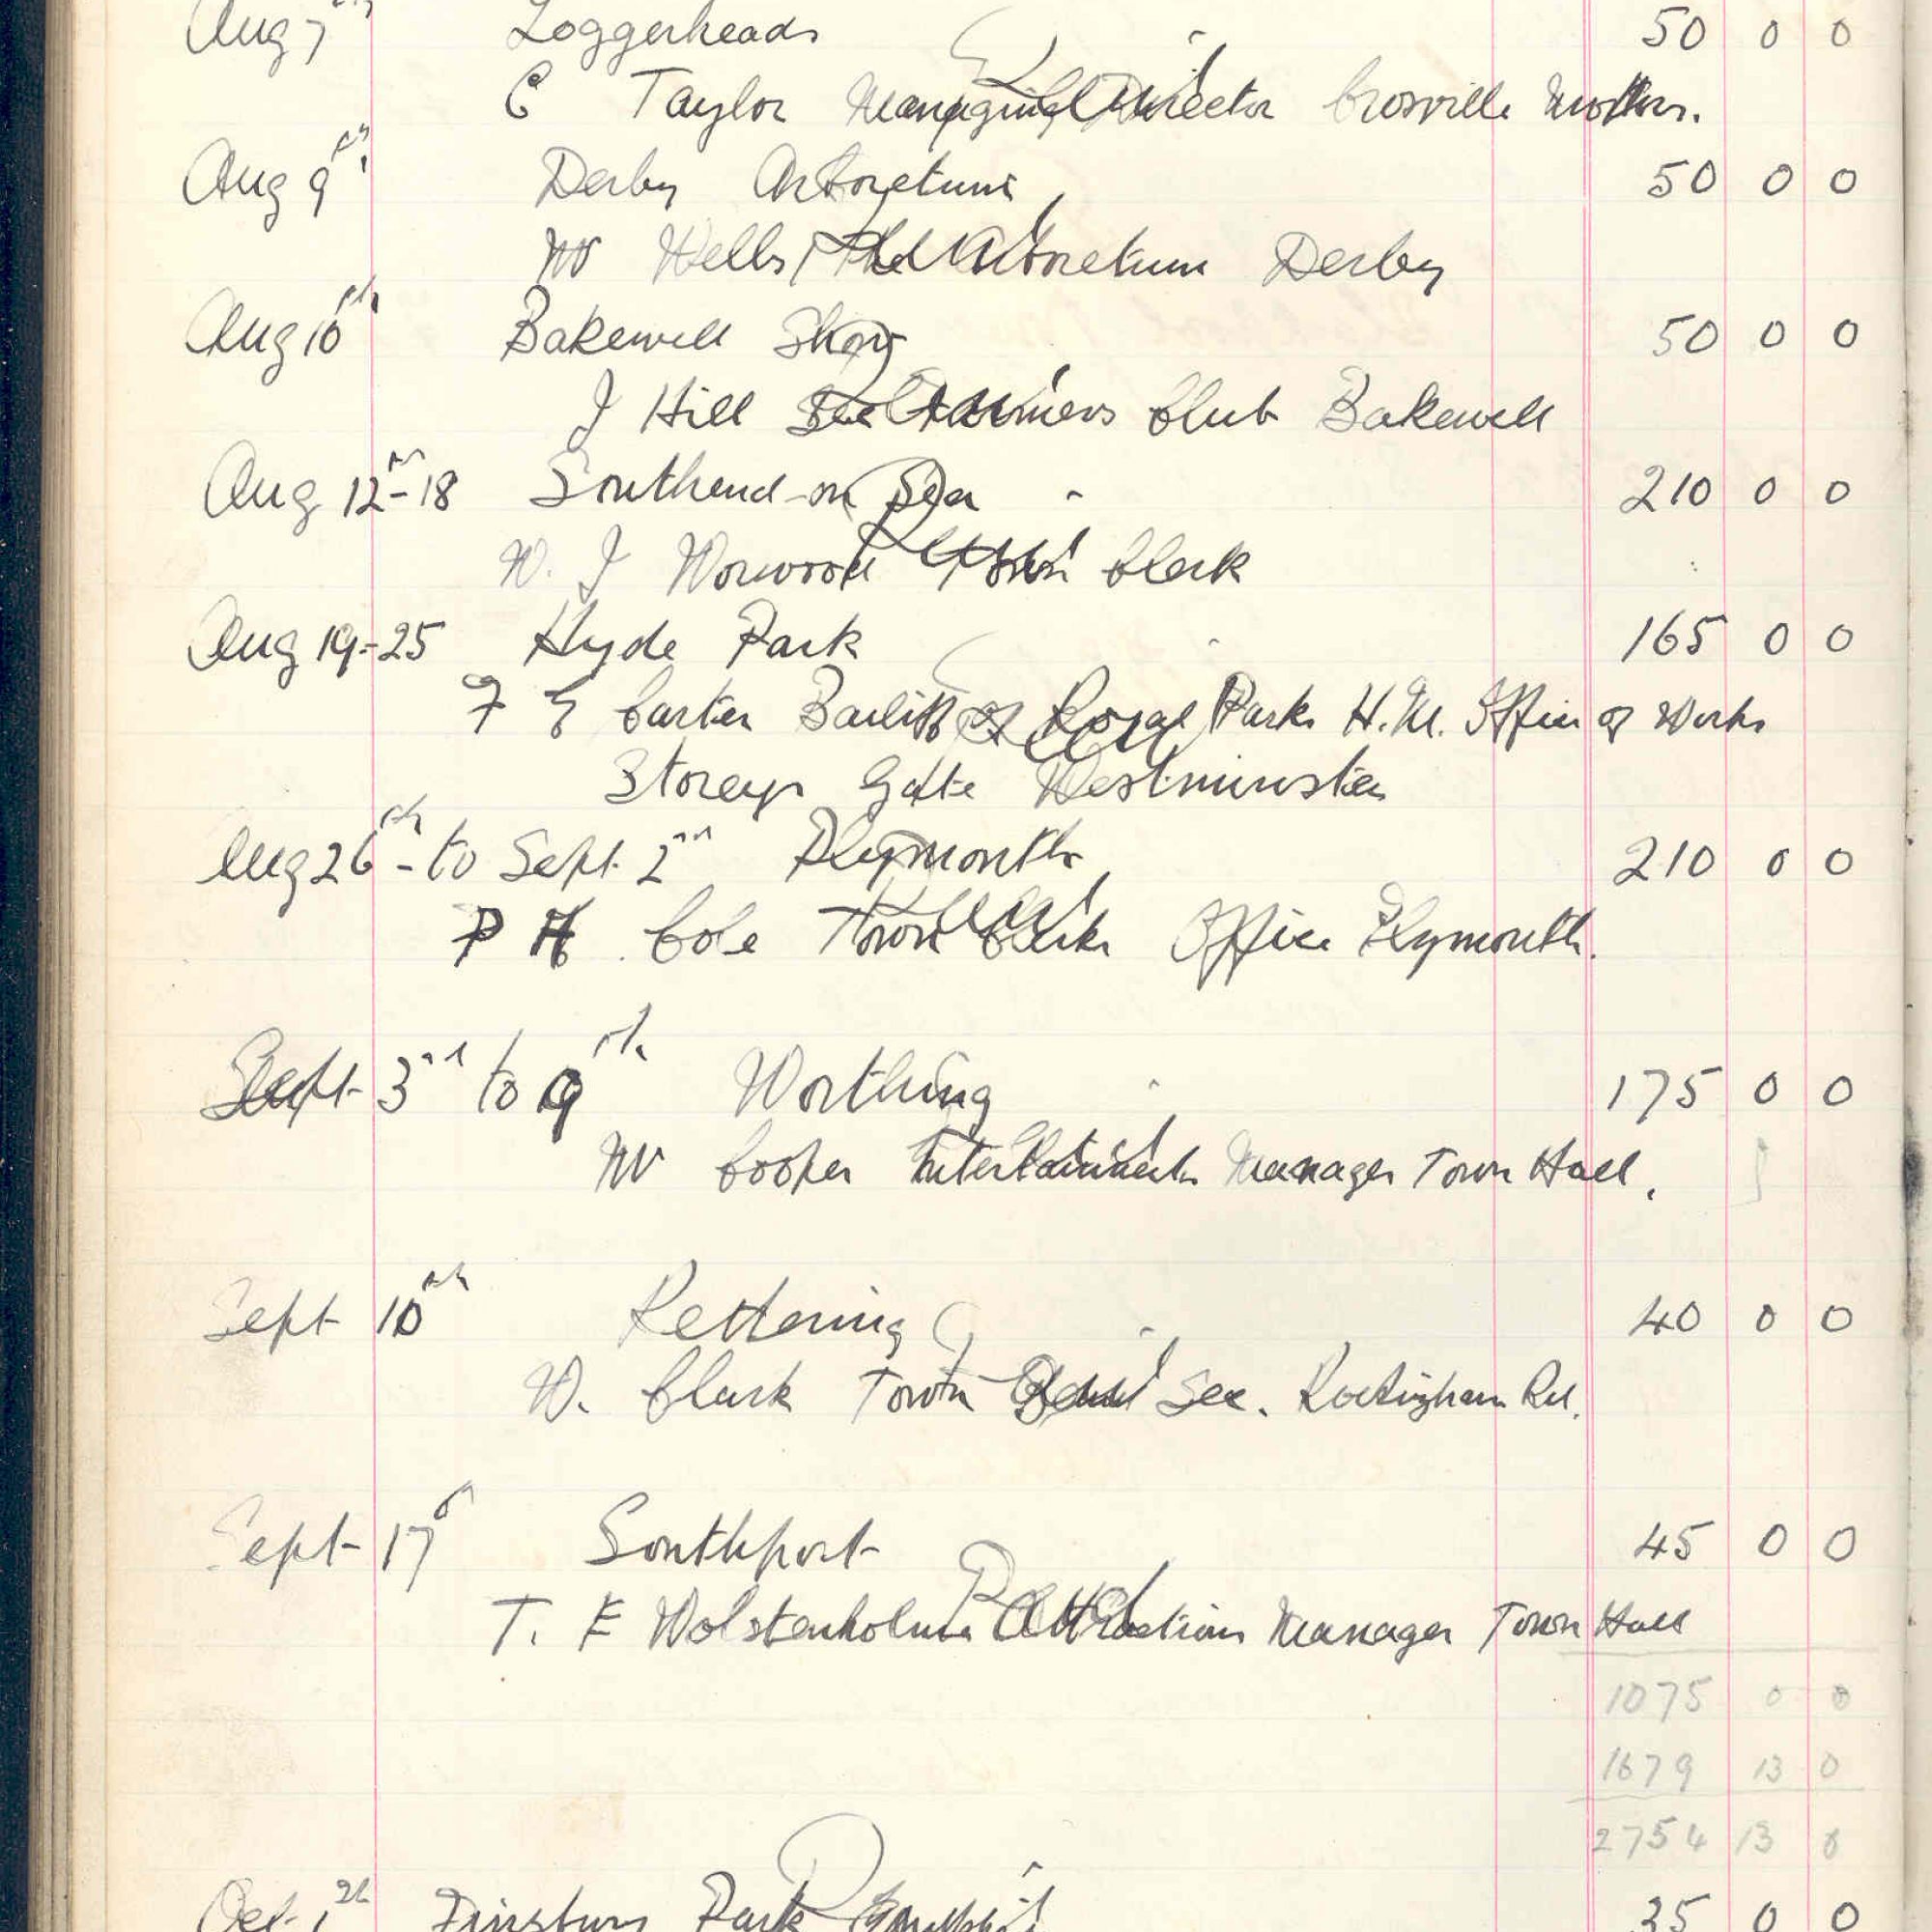 Aug 7th Loggerheads 50 0 0
C Taylor Managing Director Crosville Motors.
Aug 9th Derby Arboretum 50 0 0
W Wells The Arboretum Derby
Aug 10th Bakewell Show 50 0 0
J Hill Farmers Club Bakewell
Aug 12th-18 Southend-on Sea 210 0 0
W. J Worwood Town Clerk
Aug 19-25 Hyde Park 165 0 0
F E Carter Bailiff of Royal Parks H.M. Office of Works
Storeys Gate Westminster
Aug 26th - to Sept 2nd Plymouth 210 0 0
P H. Cole Town Clerks Office Plymouth.
Sept 3rd to 9th Worthing 175 0 0
W Cooper Entertainments Manager Town Hall.
Sept 10th Kettering 40 0 0
W. Clark Town Band Sec. Rockingham Rd.
Sept 17th Southport 45 0 0
T. E Wolstenholme Attractions Manager Town Hall
1075 0 0
1679 13 0
2754 13 0
Oct 1st Finsbury Park 35 0 0